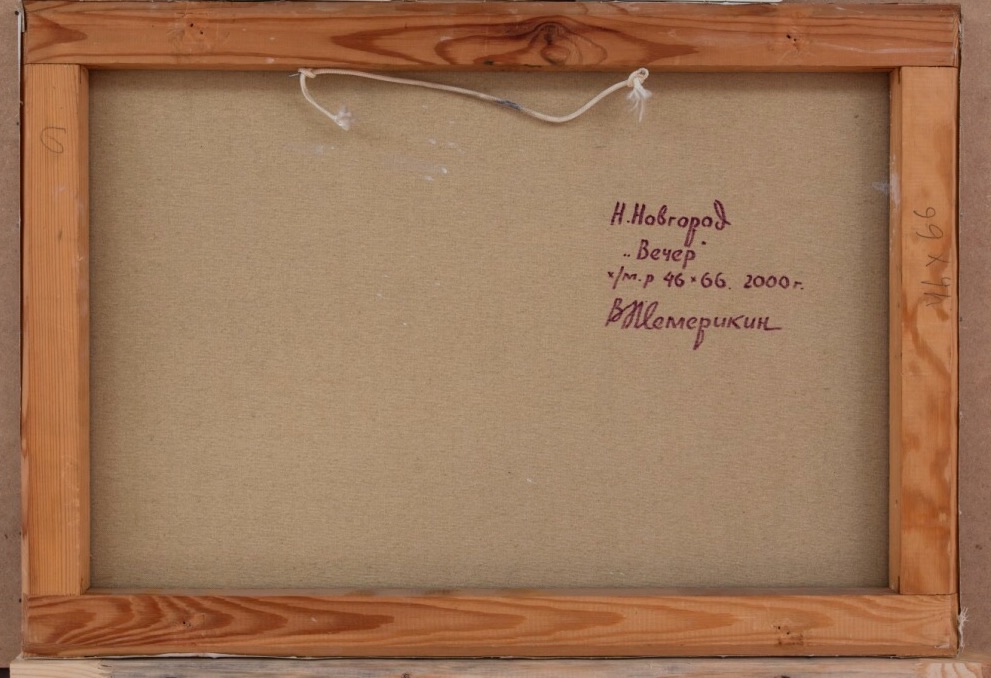 Н.Новгород
„Вечер"
х/м.р 46×66. 2000г.
В Шемерикин
5
46 x 66